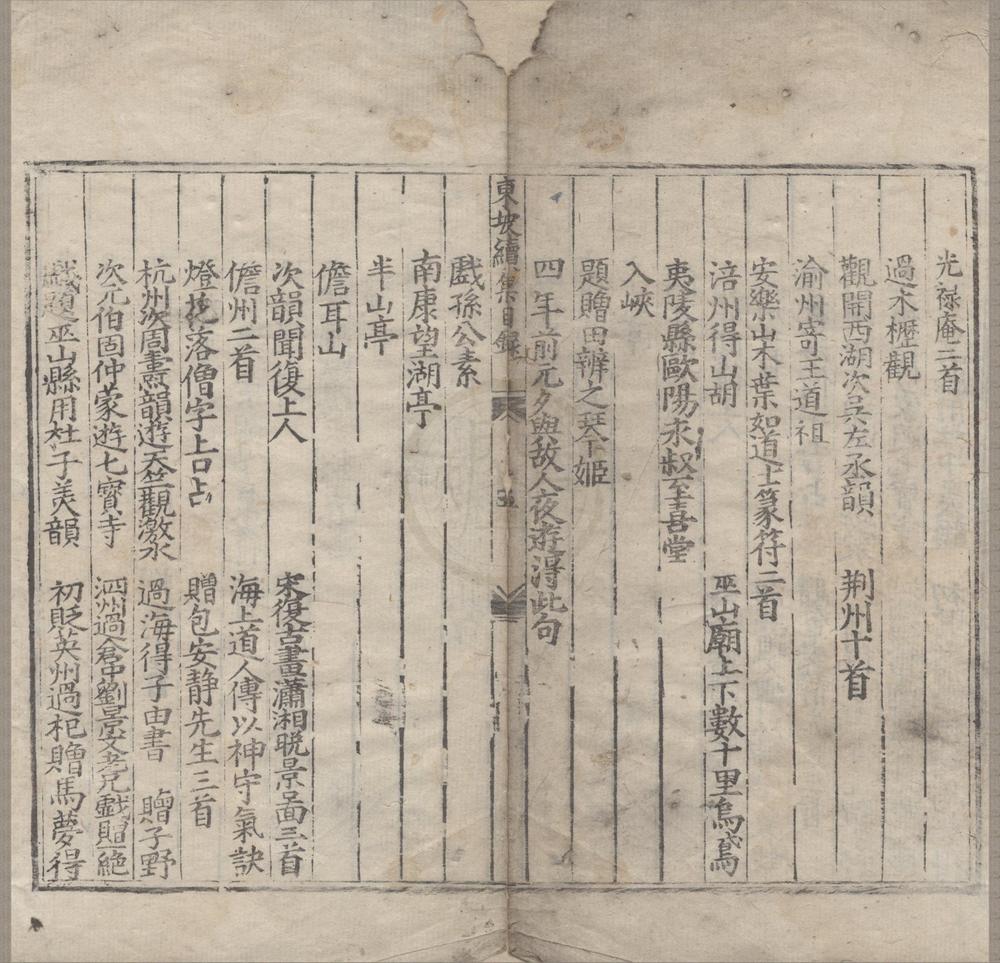 光祿庵二首
過木櫪觀
觀開西湖次吳左丞韻　荆州十首
渝州寄王道祖
安樂山木葉如道士篆符二首
涪州得山胡　巫山廟上下數十里烏鳶
夷陵縣歐陽永叔至喜堂
入峽
題贈田辨之琴姬
四年前元夕與故人夜遊得此句
東坡續集目錄
戲孫公素
南康望湖亭
半山亭
儋耳山
次韻聞復上人　宋復古畫瀟湘晚景圖三首
儋州二首　海上道人傳以神守氣訣
燈花落僧字上口占　贈包安靜先生三首
杭州次周燾韻遊天竺觀激水　過海得子由書　贈子野
次元伯固仲蒙遊七寶寺　泗州過倉中劉景文老兄戲贈一絕
戲題巫山縣用杜子美韻　初貶英州過杞贈馬夢得